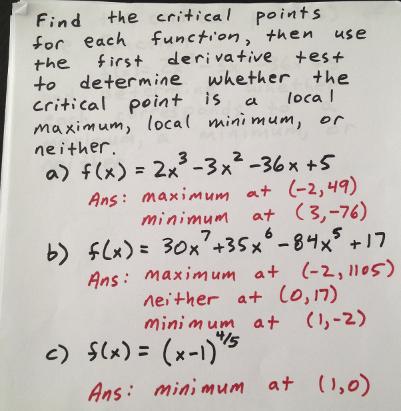 Find the critical points
for each function, then use
the first derivative test
to determine whether the
critical point is a local
maximum, local minimum, or
neither.
a) f(x) = 2x³-3x²-36x+5
Ans: maximum at (-2,49)
minimum at (3,-76)
b) f(x) = 30x⁷+35x⁶-84x⁵+17
Ans: maximum at (-2,1105)
neither at (0,17)
minimum at (1,-2)
c) f(x) = (x-1)^4/5
Ans: minimum at (1,0)